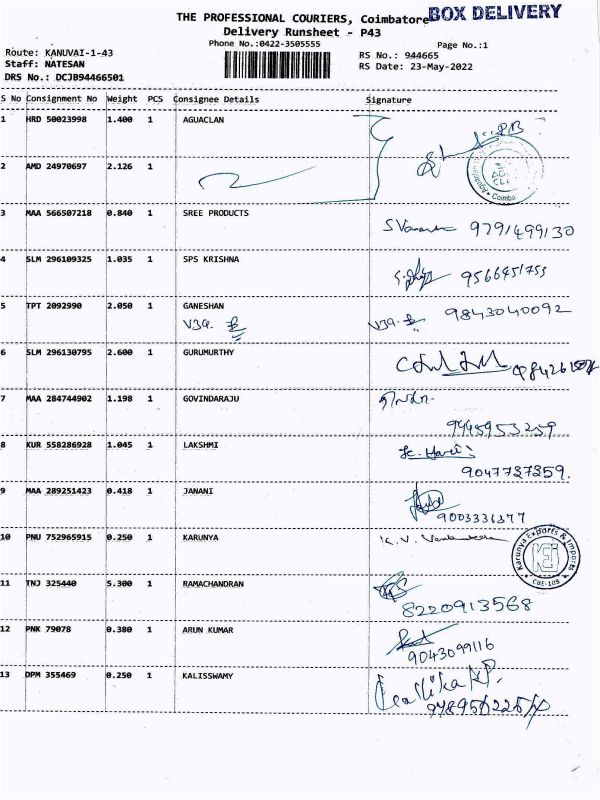 THE PROFESSIONAL COURIERS, Coimbatore BOX DELIVERY
Delivery Runsheet - P43
Phone No.:0422-3505555 Page No.:1
Route: KANUVAI-1-43 RS No.: 944665
Staff: NATESAN RS Date: 23-May-2022
DRS No.: DCJB94466501
S No Consignment No Weight PCS Consignee Details Signature
1 HRD 50023998 1.400 1 AGUACLAN
2 AMD 24970697 2.126 1
3 MAA 566507218 0.840 1 SREE PRODUCTS
9791499130
4 SLM 296109325 1.035 1 SPS KRISHNA
9566451753
5 TPT 2092990 2.050 1 GANESHAN
9843040092
6 SLM 296130795 2.600 1 GURUMURTHY
7 MAA 284744902 1.198 1 GOVINDARAJU
9445953259
8 KUR 558286928 1.045 1 LAKSHMI
9047727259.
9 MAA 289251423 0.418 1 JANANI
9003336377
10 PNU 752965915 0.250 1 KARUNYA
Karunya Exports & Imports
KEI
CBE-108
11 TNJ 325440 5.300 1 RAMACHANDRAN
8220913568
12 PNK 79078 0.380 1 ARUN KUMAR
9043099116
13 DPM 355469 0.250 1 KALISSWAMY